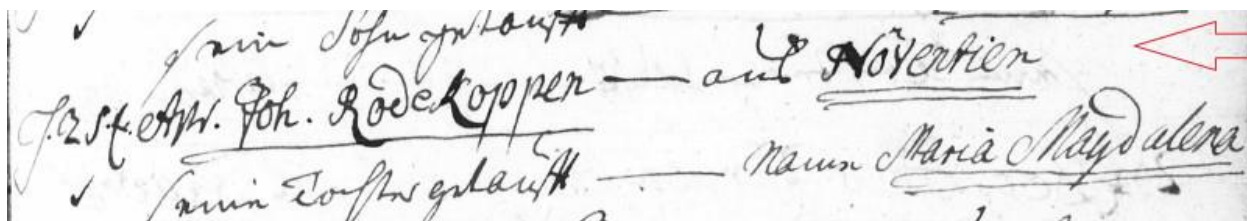 sein Sohn getaufft
d. 25. t. Apr. Joh. Rodekoppen — aus Növentien
seine Tochter getaufft — namen Maria Magdalena